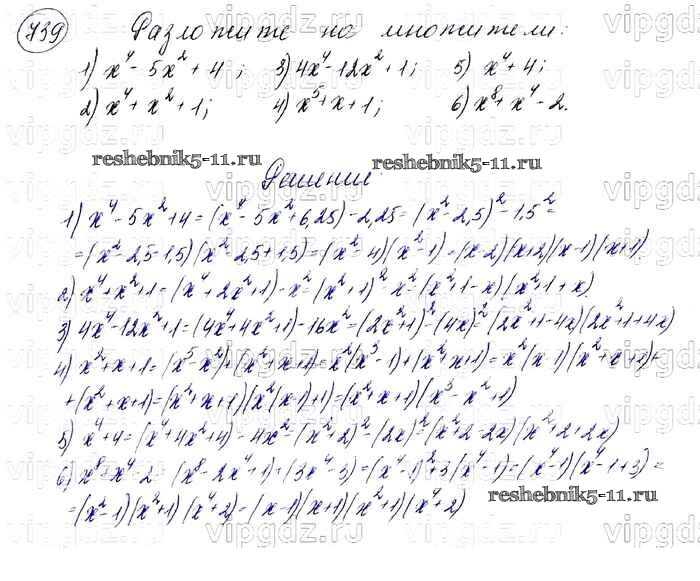 739 Разложите на множители:
1) x⁴ - 5x² + 4; 3) 4x⁴ - 12x² + 1; 5) x⁴ + 4;
2) x⁴ + x² + 1; 4) x⁵ + x + 1; 6) x⁸ + x⁴ - 2.
reshebnik5-11.ru reshebnik5-11.ru
Решение:
1) x⁴ - 5x² + 4 = (x⁴ - 5x² + 6,25) - 2,25 = (x² - 2,5)² - 1,5² =
= (x² - 2,5 - 1,5)(x² - 2,5 + 1,5) = (x² - 4)(x² - 1) = (x - 2)(x + 2)(x - 1)(x + 1)
2) x⁴ + x² + 1 = (x⁴ + 2x² + 1) - x² = (x² + 1)² - x² = (x² + 1 - x)(x² + 1 + x)
3) 4x⁴ - 12x² + 1 = (4x⁴ + 4x² + 1) - 16x² = (2x² + 1)² - (4x)² = (2x² + 1 - 4x)(2x² + 1 + 4x)
4) x⁵ + x + 1 = (x⁵ - x²) + (x² + x + 1) = x²(x³ - 1) + (x² + x + 1) = x²(x - 1)(x² + x + 1) +
+ (x² + x + 1) = (x² + x + 1)(x²(x - 1) + 1) = (x² + x + 1)(x³ - x² + 1)
5) x⁴ + 4 = (x⁴ + 4x² + 4) - 4x² = (x² + 2)² - (2x)² = (x² + 2 - 2x)(x² + 2 + 2x)
6) x⁸ + x⁴ - 2 = (x⁸ - 2x⁴ + 1) + (3x⁴ - 3) = (x⁴ - 1)² + 3(x⁴ - 1) = (x⁴ - 1)(x⁴ - 1 + 3) =
= (x² - 1)(x² + 1)(x⁴ + 2) = (x - 1)(x + 1)(x² + 1)(x⁴ + 2)
reshebnik5-11.ru